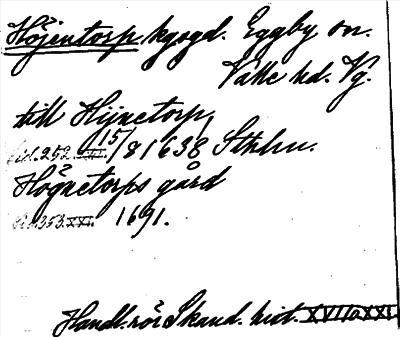 Höjentorp, kgsgd. Eggby sn.
Valle hd. Vg.
till Höjnetorp
sid. 252. XVI. 15/8 1638 Sthlm.
Högnetorps gård
sid. 353. XXI. 1691.
Handl. rör. Skand. hist. XVI o XXI